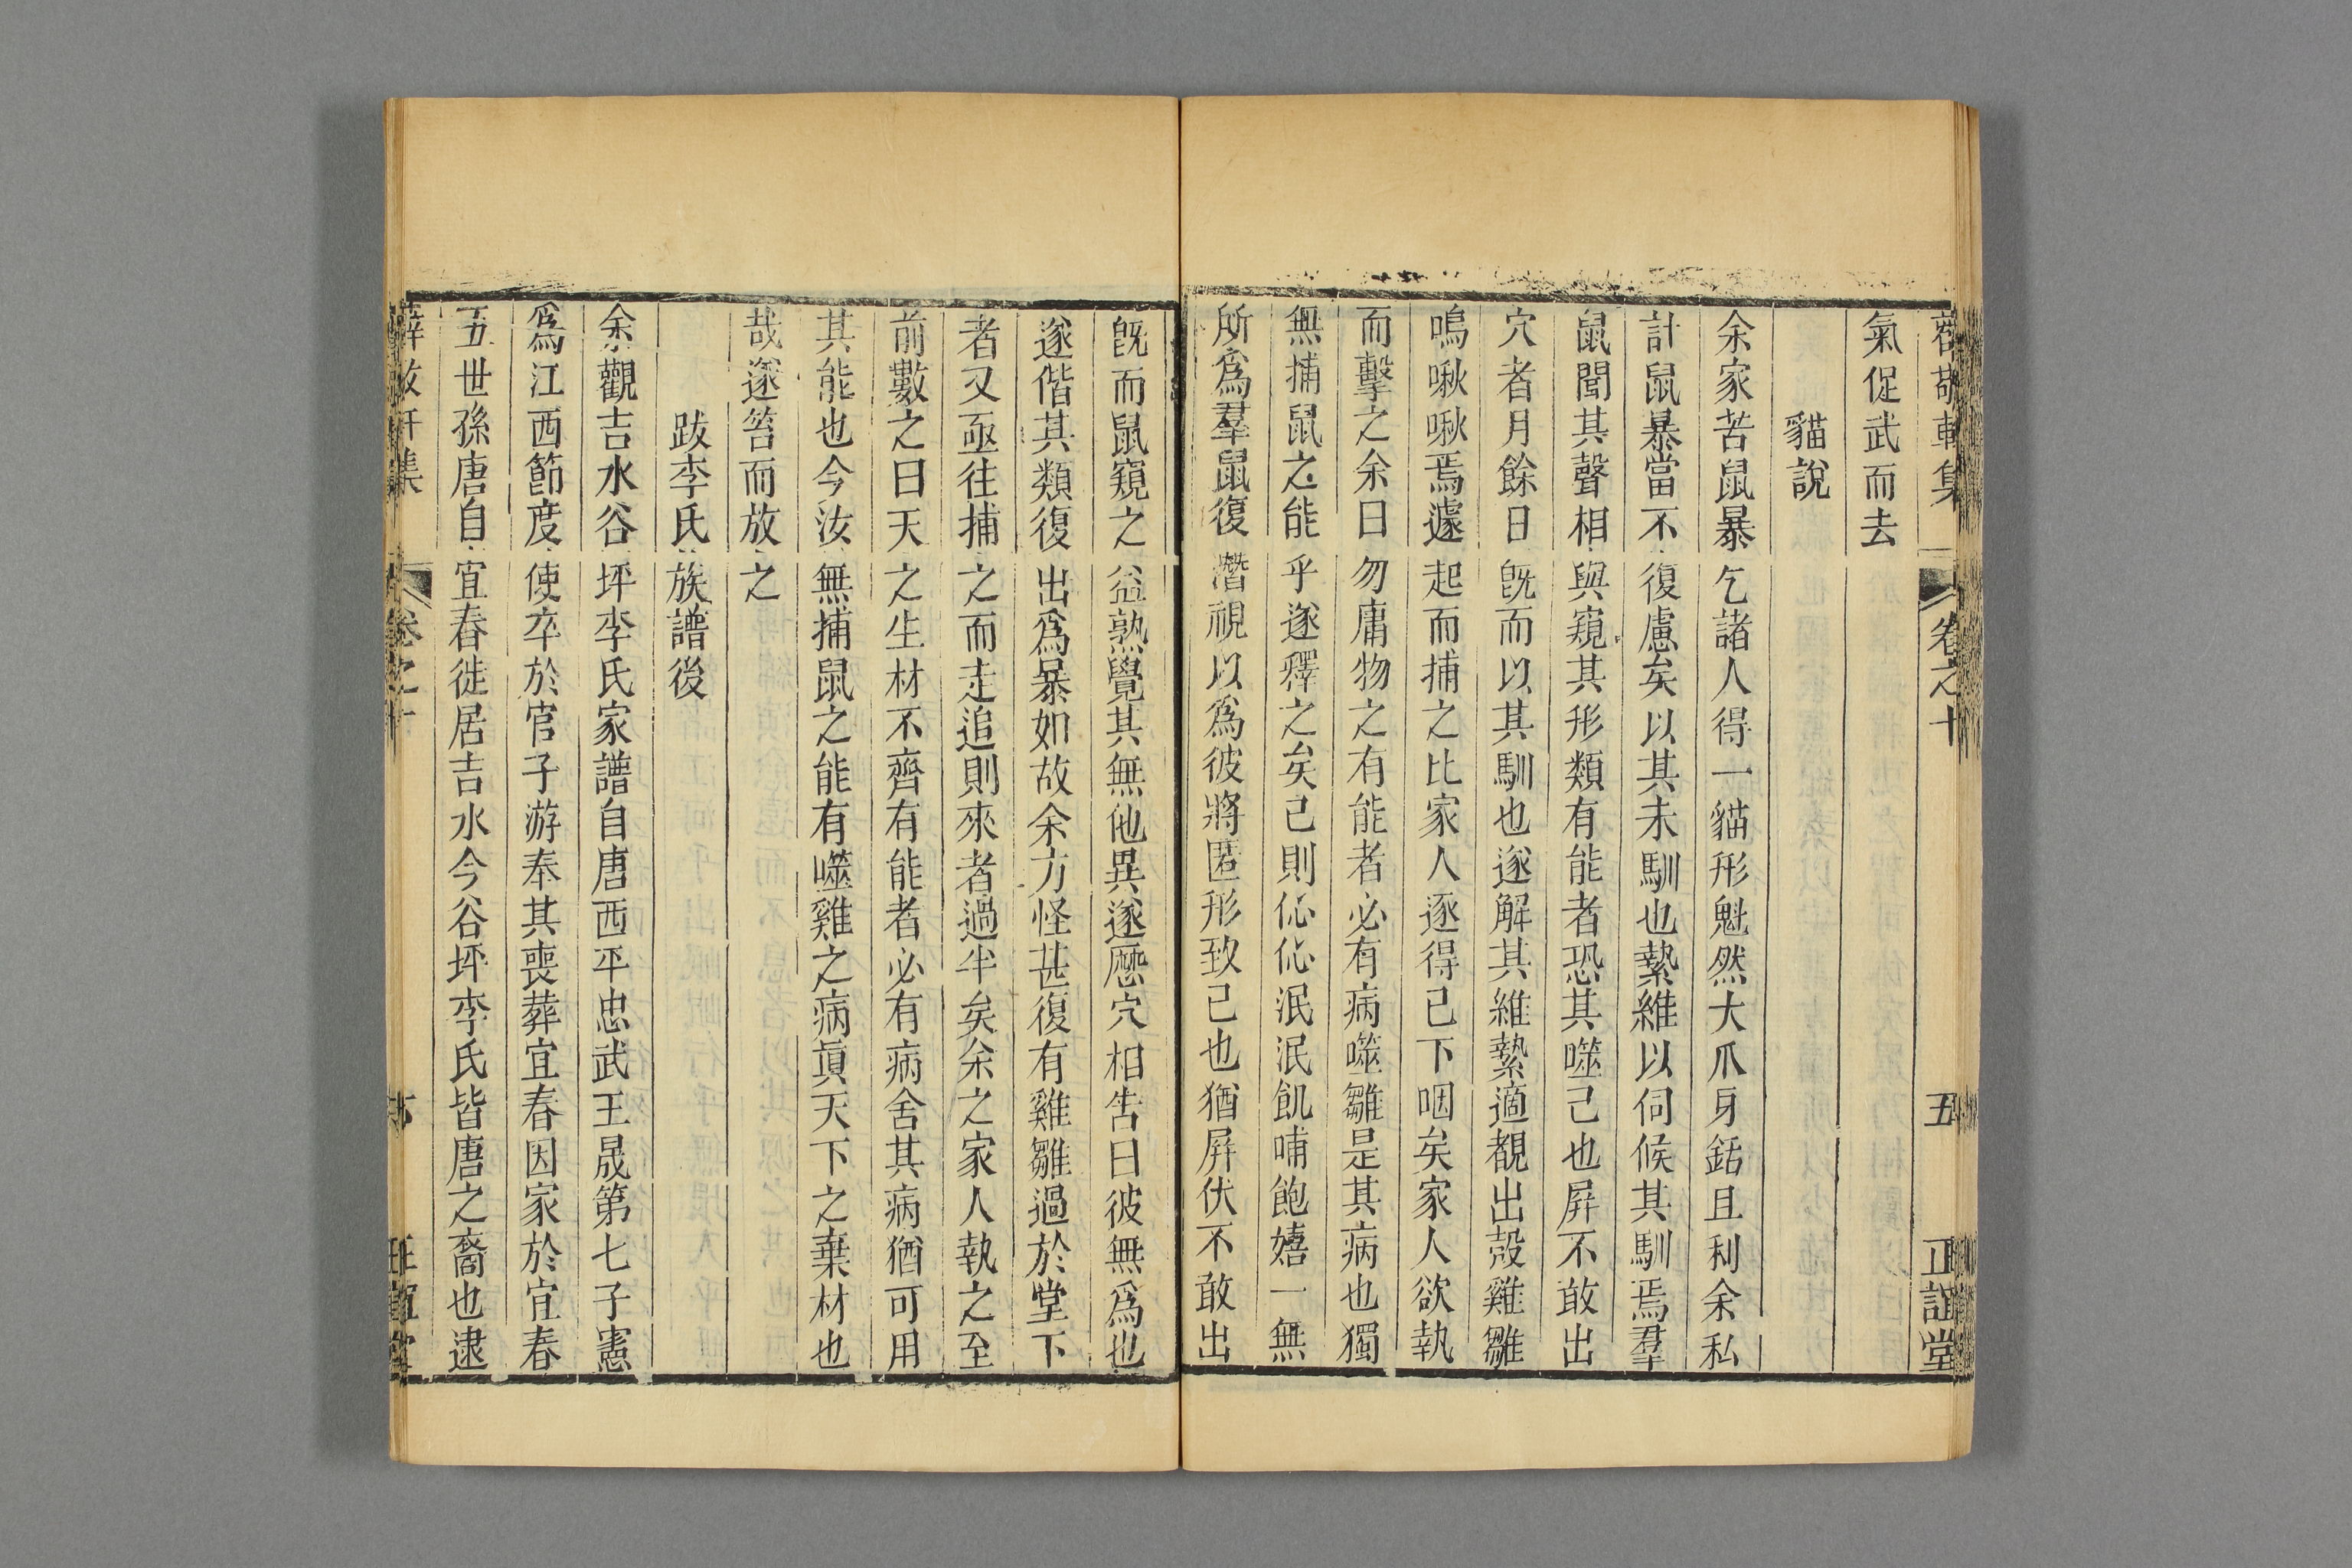 薛敬軒集　卷之十　五　正誼堂
氣促武而去
貓說
余家苦鼠暴乞諸人得一貓形魁然大爪牙銛且利余私
計鼠暴當不復慮矣以其未馴也縶維以伺候其馴焉羣
鼠聞其聲相與窺其形類有能者恐其噬己也屏不敢出
穴者月餘日旣而以其馴也遂解其維縶適覩出殼雞雛
鳴啾啾焉遽起而捕之比家人逐得已下咽矣家人欲執
而擊之余曰勿庸物之有能者必有病噬雛是其病也獨
無捕鼠之能乎遂釋之矣已則伈伈泯泯飢哺飽嬉一無
所爲羣鼠復潛視以爲彼將匿形致己也猶屏伏不敢出
旣而鼠窺之益熟覺其無他異遂歷穴相告曰彼無爲也
遂偕其類復出爲暴如故余方怪甚復有雞雛過於堂下
者又亟往捕之而走追則來者過半矣余之家人執之至
前數之曰天之生材不齊有能者必有病舍其病猶可用
其能也今汝無捕鼠之能有噬雞之病眞天下之棄材也
哉遂笞而放之
跋李氏族譜後
余觀吉水谷坪李氏家譜自唐西平忠武王晟第七子憲
爲江西節度使卒於官子游奉其喪葬宜春因家於宜春
五世孫唐自宜春徙居吉水今谷坪李氏皆唐之裔也逮
薛敬軒集　卷之十　正誼堂